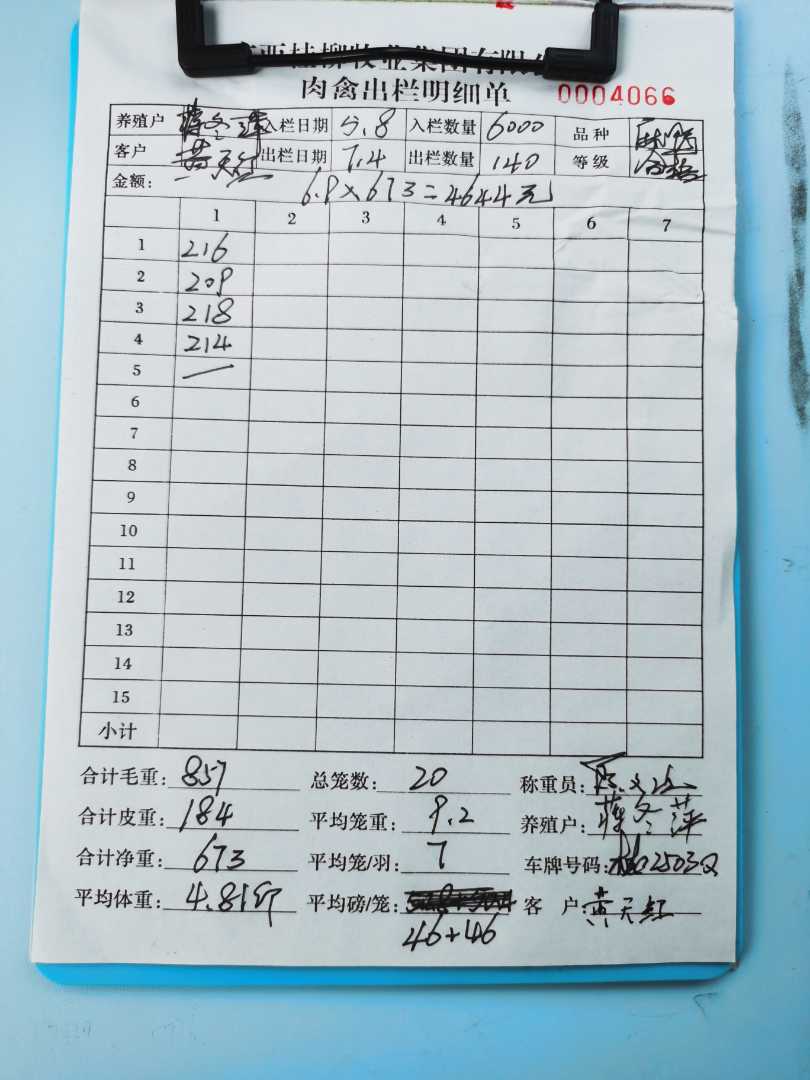 西桂柳牧业集团有限
肉禽出栏明细单 0004066
养殖户 蒋冬萍 入栏日期 5.8 入栏数量 6000 品种
客户 黄天红 出栏日期 7.4 出栏数量 140 等级
金额: 6.9×673=4644元
1 2 3 4 5 6 7
1 216
2 209
3 218
4 214
5 —
6
7
8
9
10
11
12
13
14
15
小计
合计毛重: 857 总笼数: 20 称重员:
合计皮重: 184 平均笼重: 9.2 养殖户: 蒋冬萍
合计净重: 673 平均笼/羽: 7 车牌号码: 2503Q
平均体重: 4.81斤 平均磅/笼: 客 户: 黄天红
46+46